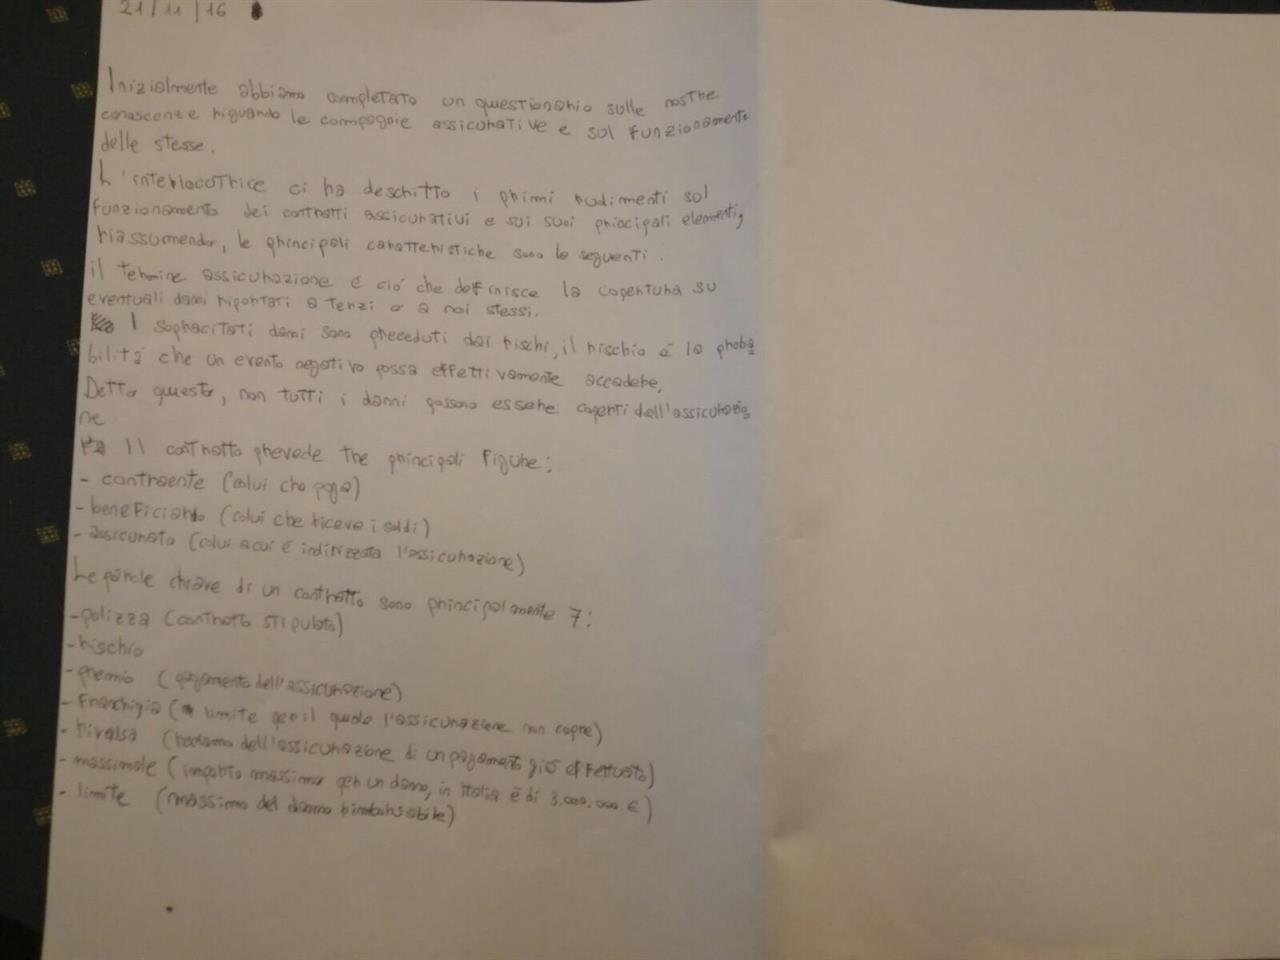 21/11/16
Inizialmente abbiamo completato un questionario sulle nostre
conoscenze riguardo le compagnie assicurative e sul funzionamento
delle stesse.
L'interlocutrice ci ha descritto i primi rudimenti sul
funzionamento dei contratti assicurativi e sui suoi principali elementi,
riassumendo, le principali caratteristiche sono le seguenti:
il termine assicurazione è ciò che definisce la copertura su
eventuali danni riportati a terzi o a noi stessi.
I sopracitati danni sono preceduti dai rischi, il rischio è la proba
bilità che un evento negativo possa effettivamente accadere.
Detto questo, non tutti i danni possono essere coperti dall'assicurazio
ne.
Il contratto prevede tre principali figure:
- contraente (colui che paga)
- beneficiario (colui che riceve i soldi)
- assicurato (colui a cui è indirizzata l'assicurazione)
Le parole chiave di un contratto sono principalmente 7:
- polizza (contratto stipulato)
- rischio
- premio (pagamento dell'assicurazione)
- franchigia (limite per il quale l'assicurazione non copre)
- rivalsa (reclamo dell'assicurazione di un pagamento già effettuato)
- massimale (importo massimo per un danno, in Italia è di 3.000.000 €)
- limite (massimo del danno rimborsabile)